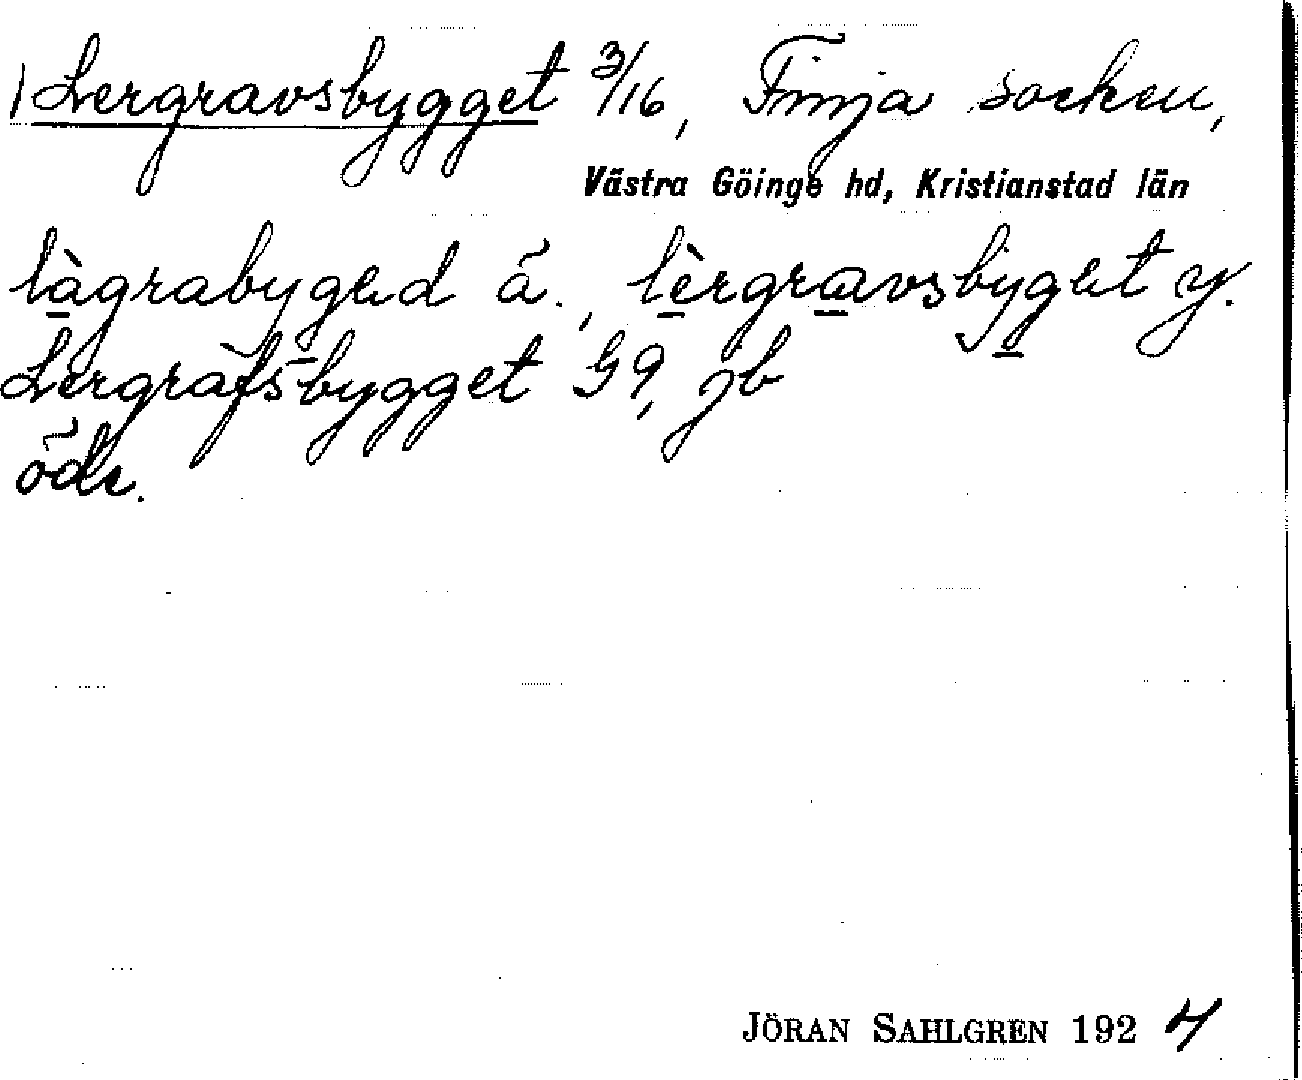 1) Lergravsbygget 3/16, Finja socken,
Västra Göinge hd, Kristianstad län
làgrabygəd ä., lèrgravsbygət y.
Lergrafsbygget G9, jb
öde.
JÖRAN SAHLGREN 1924